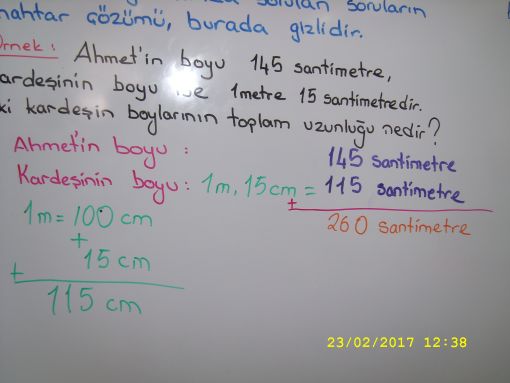 sorulan soruların
anahtar çözümü, burada gizlidir.
Örnek: Ahmet'in boyu 145 santimetre,
kardeşinin boyu ise 1metre 15 santimetredir.
iki kardeşin boylarının toplam uzunluğu nedir?
Ahmet'in boyu : 145 santimetre
Kardeşinin boyu: 1m, 15cm = 115 santimetre
+
260 santimetre
1m = 100 cm
+
15 cm
+
115 cm
23/02/2017 12:38